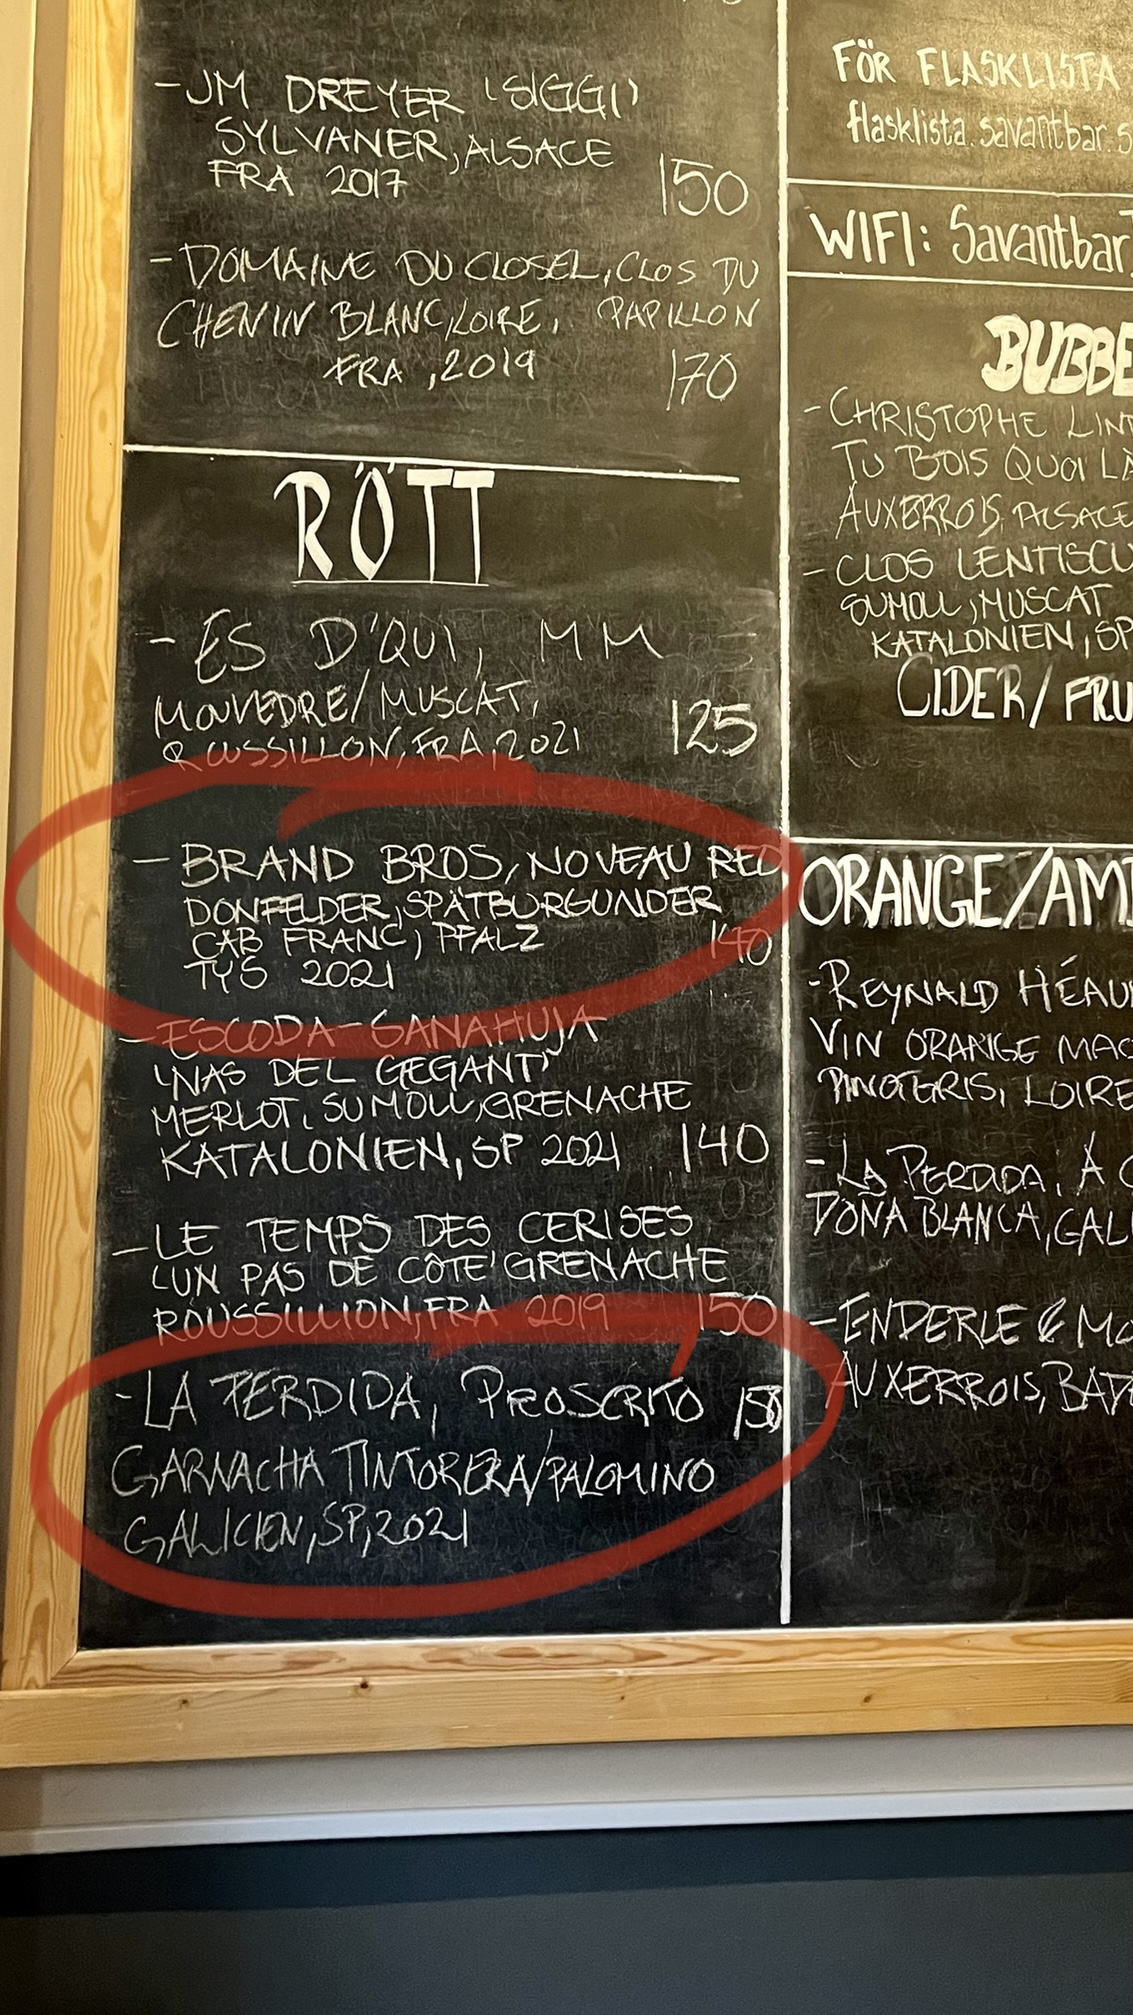 -JM DREYER 'SIGGI'
SYLVANER, ALSACE
FRA 2017 150
-DOMAINE DU CLOSEL, CLOS DU
CHENIN BLANC, LOIRE, PAPILLON
FRA, 2019 170
RÖTT
-ES D'QUI, MM
MOUVEDRE/MUSCAT,
ROUSSILLON, FRA, 2021 125
-BRAND BROS, NOVEAU RED
DONFELDER, SPÄTBURGUNDER
CAB FRANC, PFALZ 140
TYS 2021
-ESCODA-SANAHUJA
'NAS DEL GEGANT'
MERLOT, SUMOLL, GRENACHE
KATALONIEN, SP 2021 140
-LE TEMPS DES CERISES
'UN PAS DE CÔTE' GRENACHE
ROUSSILLION, FRA 2019 150
-LA PERDIDA, PROSCRITO 150
GARNACHA TINTORERA/PALOMINO
GALICIEN, SP, 2021
FÖR FLASKLISTA
flasklista.savantbar.s
WIFI: Savantbar
BUBBE
-CHRISTOPHE LIN
TU BOIS QUOI LÀ
AUXERROIS, ALSACE
-CLOS LENTISCU
SUMOLL, MUSCAT
KATALONIEN, SP
CIDER/FRU
ORANGE/AM
-REYNALD HÉAU
VIN ORANGE MAC
PINOT GRIS, LOIRE
-LA PERDIDA, A
DONA BLANCA, GAL
-ENDERLE & MO
AUXERROIS, BAD